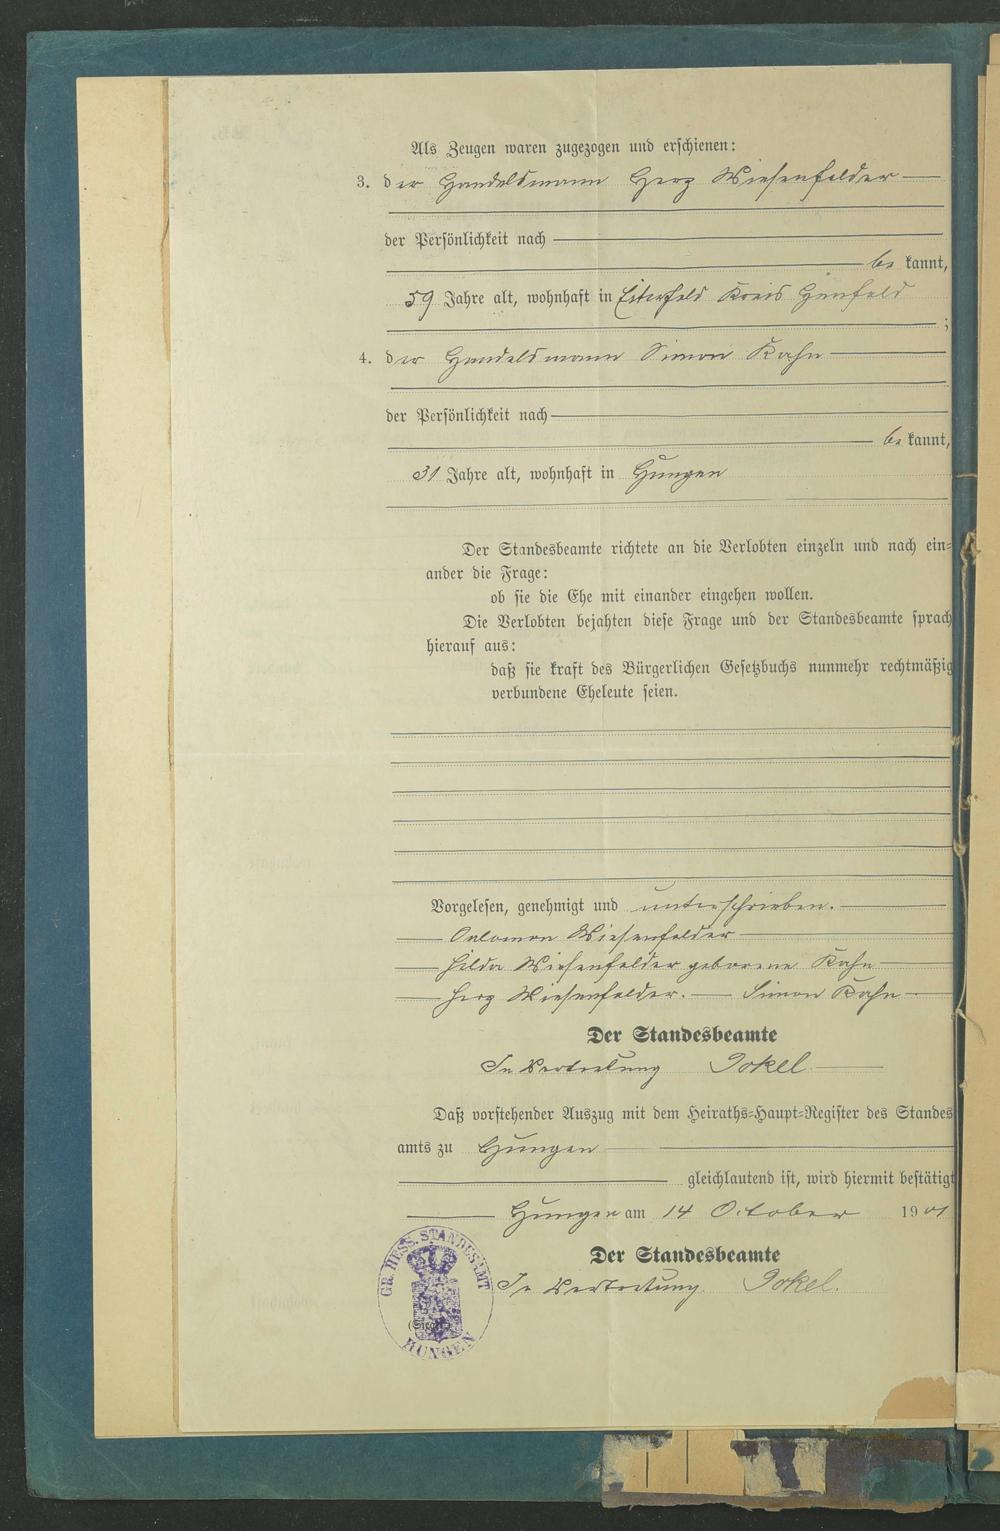 Als Zeugen waren zugezogen und erschienen:
3. der Handelsmann Herz Wiesenfelder
der Persönlichkeit nach
be kannt,
59 Jahre alt, wohnhaft in Eiterfeld Kreis Hünfeld
;
4. der Handelsmann Simon Kahn
der Persönlichkeit nach
be kannt,
31 Jahre alt, wohnhaft in Hungen
Der Standesbeamte richtete an die Verlobten einzeln und nach ein-
ander die Frage:
ob sie die Ehe mit einander eingehen wollen.
Die Verlobten bejahten diese Frage und der Standesbeamte sprach
hierauf aus:
daß sie kraft des Bürgerlichen Gesetzbuchs nunmehr rechtmäßig
verbundene Eheleute seien.
Vorgelesen, genehmigt und unterschrieben.
Salomon Wiesenfelder
Hilda Wiesenfelder geborene Kahn
Herz Wiesenfelder. Simon Kahn
Der Standesbeamte
In Vertretung Jokel
Daß vorstehender Auszug mit dem Heiraths-Haupt-Register des Standes
amts zu Hungen
gleichlautend ist, wird hiermit bestätigt
Hungen am 14 October 1901
Der Standesbeamte
In Vertretung. Jokel.
GR. HESS. STANDESAMT
(Siegel)
HUNGEN